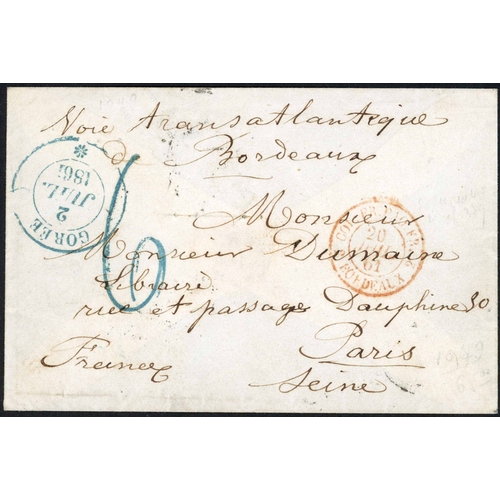 Voie transatlantique
de Bordeaux
GORÉE
2
JUIL.
1861
*
6
COL. FR.
20
JUIL.
61
BORDEAUX
Monsieur
Monsieur Dumaine
Libraire
rue et passage Dauphine 30
Paris
France
Seine